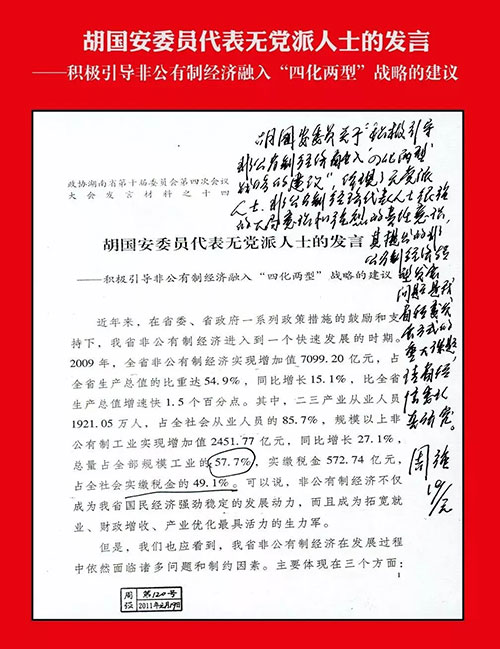 胡国安委员代表无党派人士的发言
——积极引导非公有制经济融入“四化两型”战略的建议
胡国安委员关于“积极引导
非公有制经济融入“四化两型”
战略的建议”，体现了无党派
人士、非公有制经济代表人士很强
的大局意识和强烈的责任意识，
其提出的非
公有制经济转
型发展
问题是我
省转变发
展方式的
重大课题，
请省经
信委认
真研究。
周强
政协湖南省第十届委员会第四次会议
大会发言材料之十四
胡国安委员代表无党派人士的发言
——积极引导非公有制经济融入“四化两型”战略的建议
近年来，在省委、省政府一系列政策措施的鼓励和支
持下，我省非公有制经济进入到一个快速发展的时期。
2009 年，全省非公有制经济实现增加值 7099.20 亿元，占
全省生产总值的比重达 54.9%，同比增长 15.1%，比全省
生产总值增速快 1.5 个百分点。其中，二三产业从业人员
1921.05 万人，占全社会从业人员的 85.7%，规模以上非
公有制工业实现增加值 2451.77 亿元，同比增长 27.1%，
总量占全部规模工业的 57.7%，实缴税金 572.74 亿元，
占全社会实缴税金的 49.1%。可以说，非公有制经济不仅
成为我省国民经济强劲稳定的发展动力，而且成为拓宽就
业、财政增收、产业优化最具活力的生力军。
但是，我们也应看到，我省非公有制经济在发展过程
中依然面临诸多问题和制约因素。主要体现在三个方面：
1
周
第120号
2011年2月19日